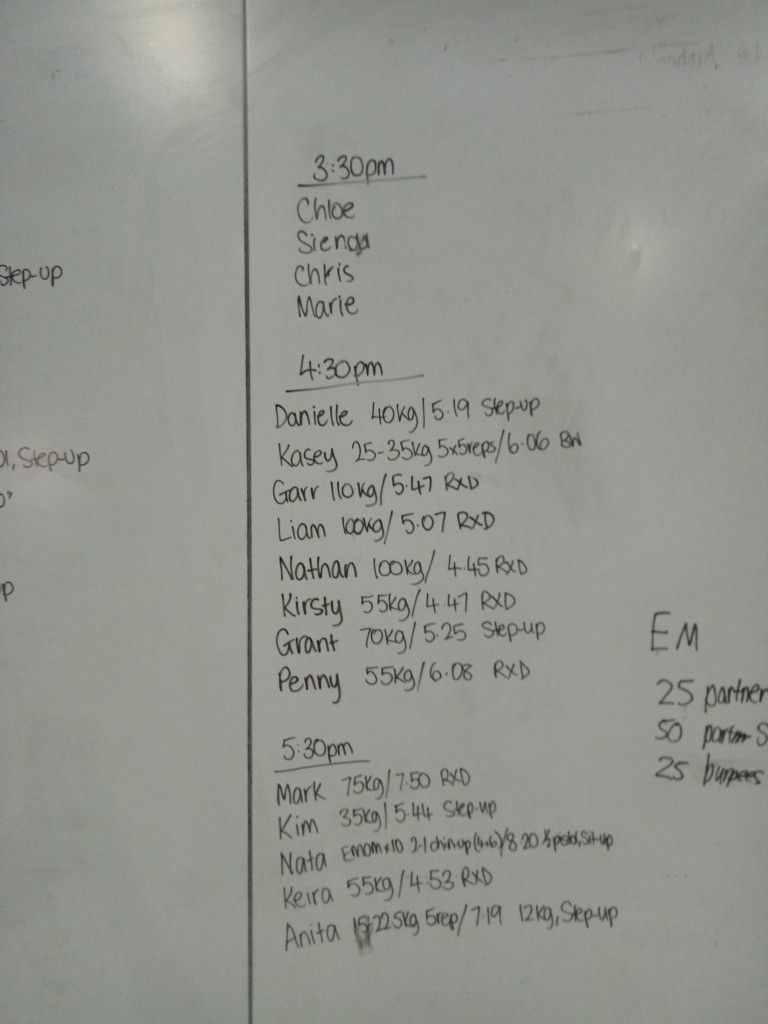 Step-up
, Step-up
3:30pm
Chloe
Sienna
Chris
Marie
4:30pm
Danielle 40kg/5.19 Step-up
Kasey 25-35kg 5x5reps/6.06 BW
Garr 110kg/5.47 RXD
Liam 100kg/5.07 RXD
Nathan 100kg/ 4.45 RXD
Kirsty 55kg/4.47 RXD
Grant 70kg/5.25 Step-up
Penny 55kg/6.08 RXD
5:30pm
Mark 75kg/7.50 RXD
Kim 35kg/5.44 Step-up
Nata Emom x10 2-1 chinup (4,6)/8.20 ½ pistol, Sit-up
Keira 55kg/4.53 RXD
Anita 22.5kg 5rep/7.19 12kg, Step-up
EM
25 partner
50 partner S
25 burpees